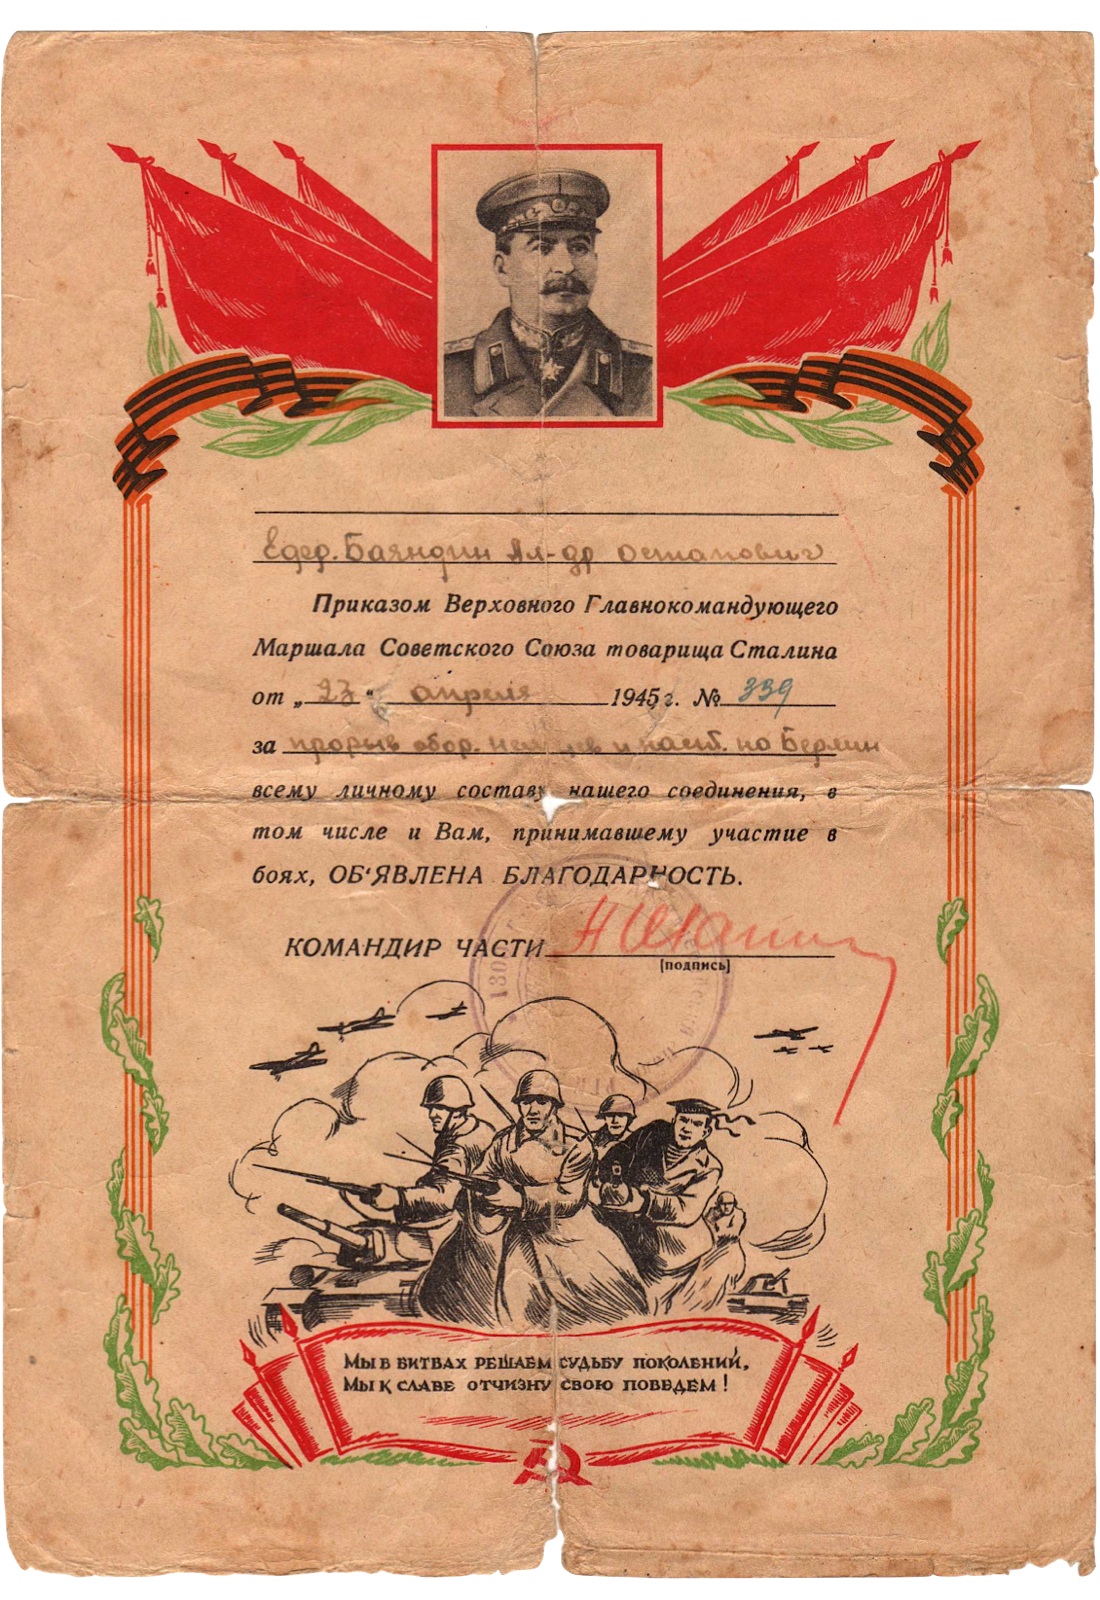 Ефр. Баяндин Ал-др Остапович
Приказом Верховного Главнокомандующего
Маршала Советского Союза товарища Сталина
от „23“ апреля 1945 г. № 339
за прорыв обор. немцев и наст. на Берлин
всему личному составу нашего соединения, в
том числе и Вам, принимавшему участие в
боях, ОБ'ЯВЛЕНА БЛАГОДАРНОСТЬ.
КОМАНДИР ЧАСТИ
[подпись]
МЫ В БИТВАХ РЕШАЕМ СУДЬБУ ПОКОЛЕНИЙ,
МЫ К СЛАВЕ ОТЧИЗНУ СВОЮ ПОВЕДЕМ!